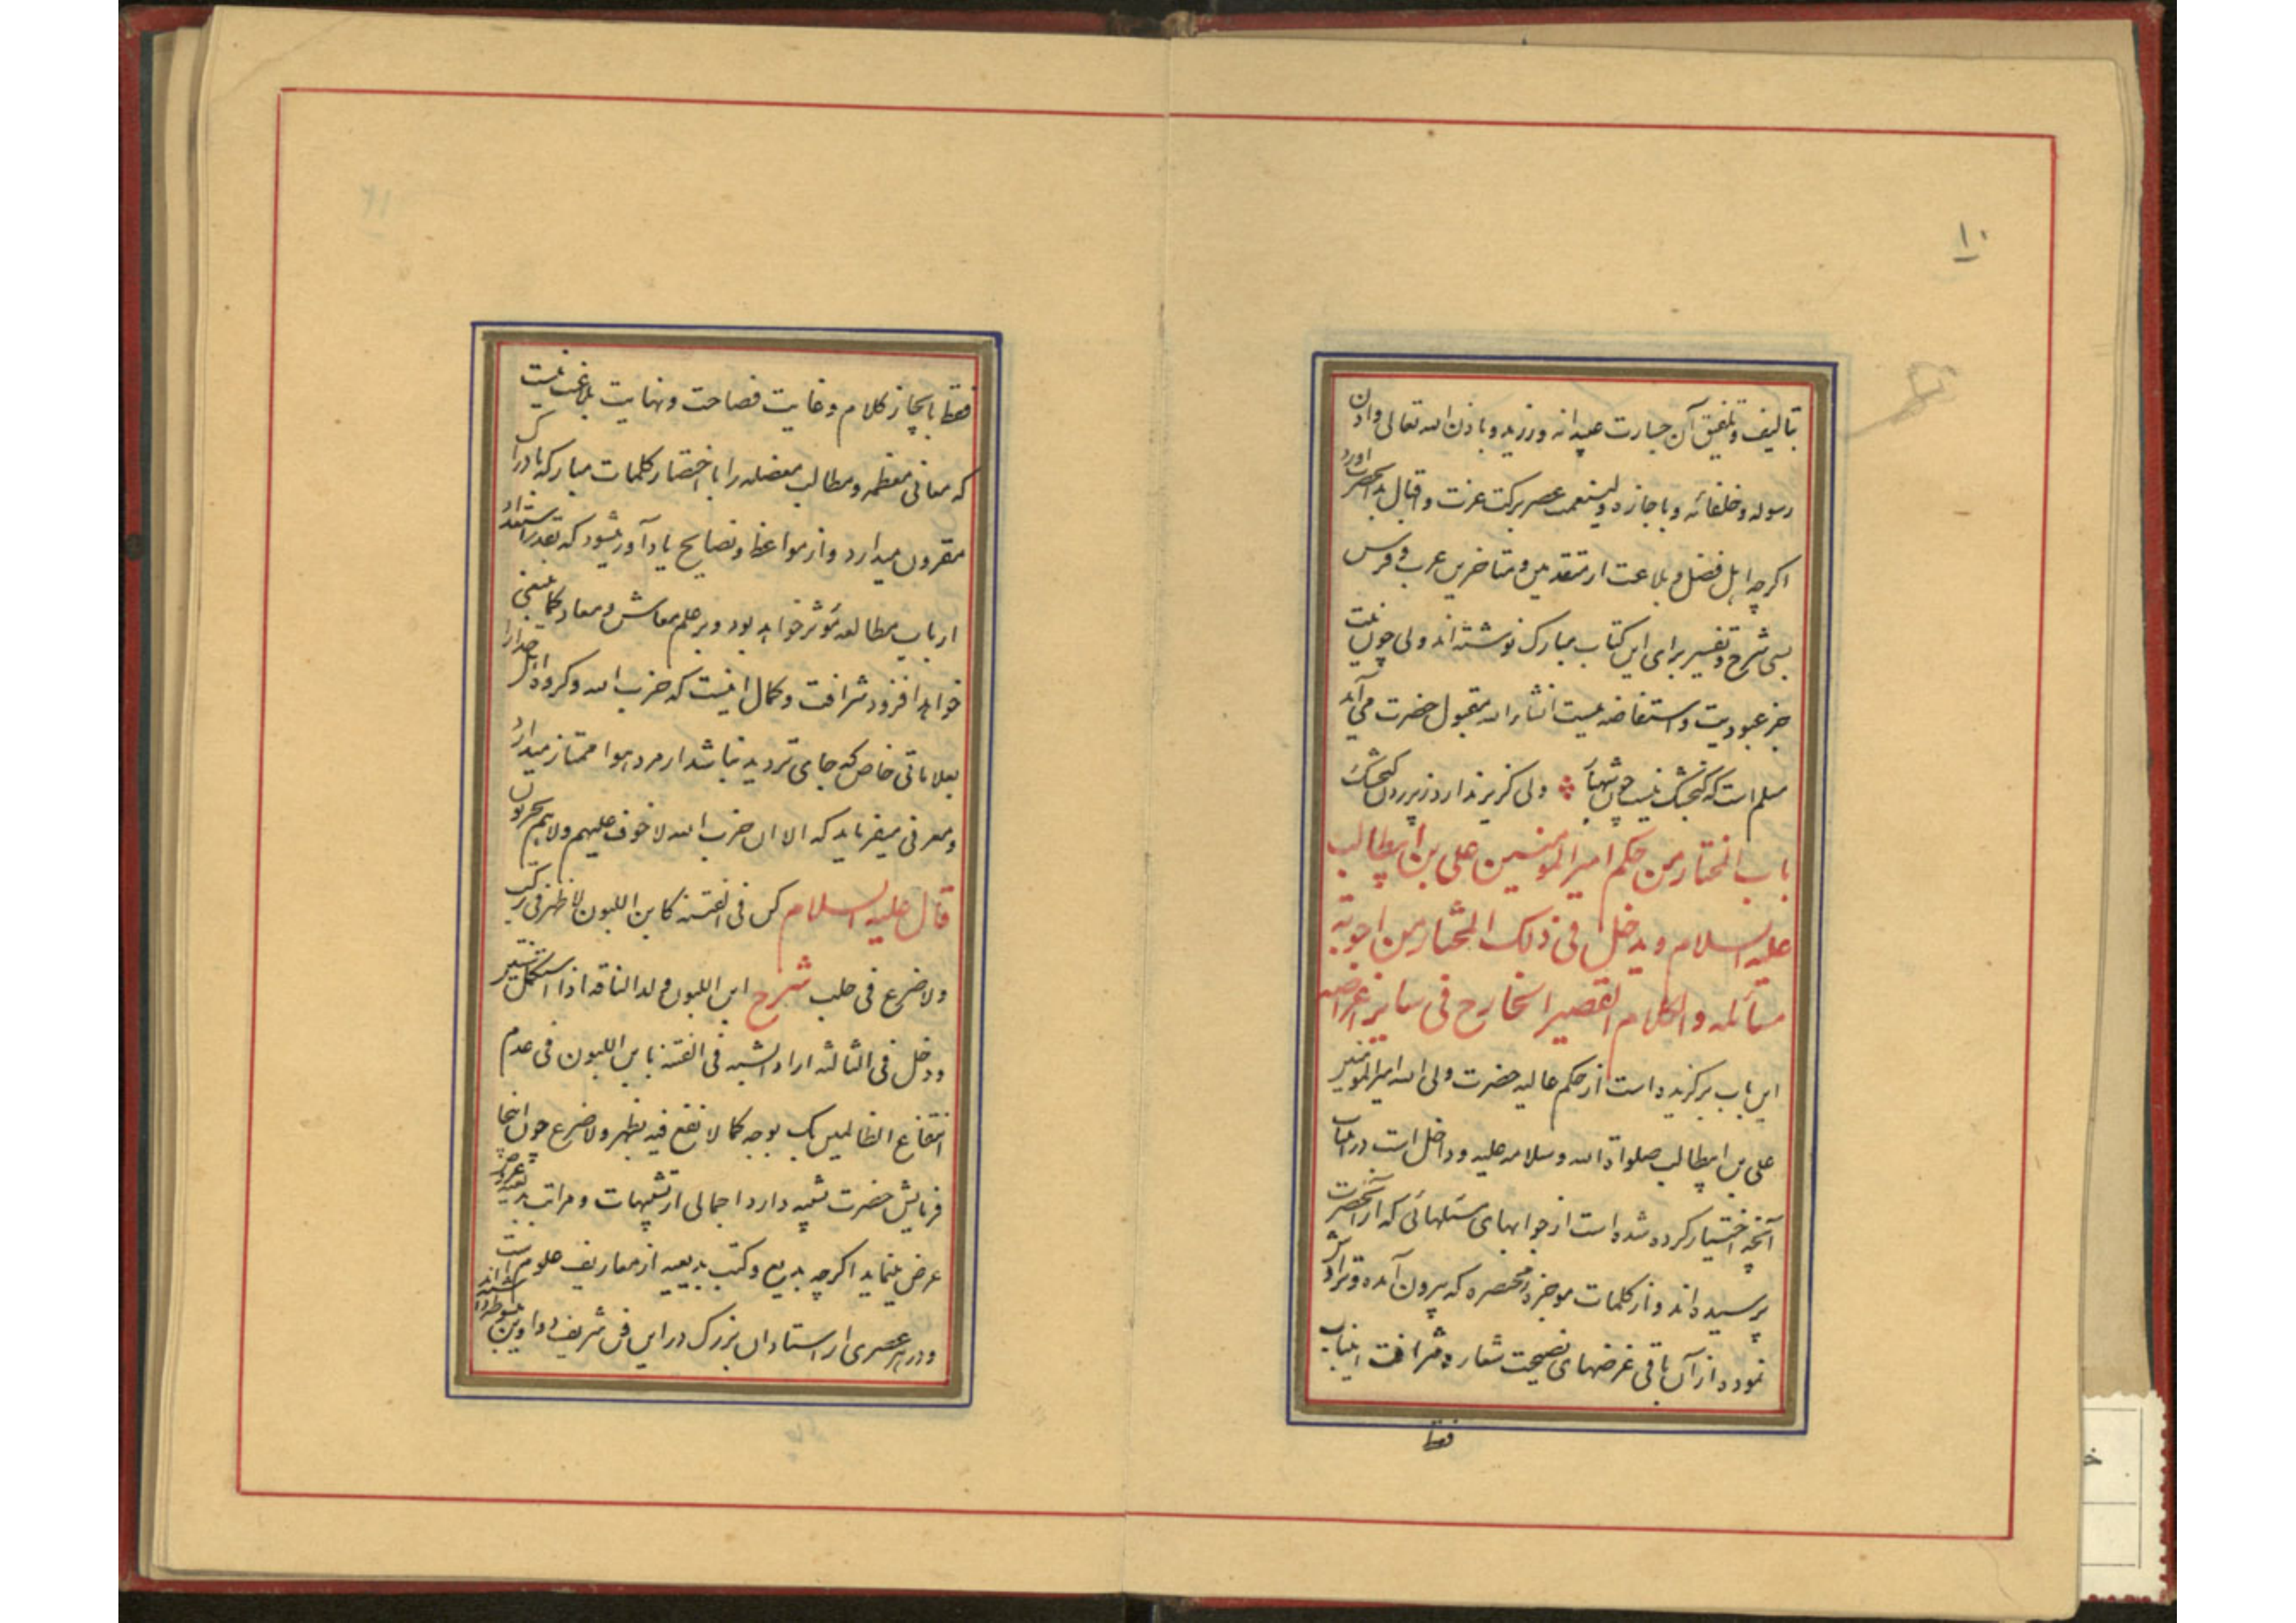 ۱۰
بتألیف و تلفیق آن جسارت عبیدانه ورزید و باذن الله تعالی و اذن
رسوله و خلفائه و باجازه ولینعمت عصر برکت عزت و اقبال
اگرچه اهل فضل و بلاغت از متقدمین و متاخرین عرب و فرس
بسی شرح و تفسیر برای این کتاب مبارک نوشته‌اند ولی چون نیت
جز عبودیت و استفاضه نیست انشاء الله مقبول حضرت می‌آید
مسلم است که گنجشک نیست چون شهباز ولی گریز ندارد ز پر زدن گنجشک
باب المختار من حکم امیر المومنین علی بن ابیطالب
علیه السلام و یدخل فی ذلک المختار من اجوبة
مسائله والکلام القصیر الخارج فی سایر اغراضه
این باب برگزیده است از حکم عالیه حضرت ولی الله امیر المومنین
علی بن ابیطالب صلواة الله و سلامه علیه و داخل است در این باب
آنچه اختیار کرده شده است از جوابهای سئلهائی که از آنحضرت
پرسیده‌اند و از کلمات موجزه مختصره که بیرون آمده و تراوش
نموده از آن باقی غرضهای نصیحت شعار و شرافت
فقط
فقط با یجاز کلام و غایت فصاحت و نهایت بلاغت نیست
که معانی معظمه و مطالب معضله را با اختصار کلمات مبارکه بادراک
مقرون میدارد و از مواعظ و نصایح یادآور میشود که بقدر استعداد
ارباب مطالعه مؤثر خواهد بود و بر علم معاش و معاد کما ینبغی
خواهد افزود شرافت و کمال اینست که حزب الله و گروه اهل خدا را
بعلاماتی خاص که جای تردید نباشد از مرد هوا ممتاز میدارد
و معرفی میفرماید که الا ان حزب الله لا خوف علیهم ولا هم یحزنون
قال علیه السلام کن فی الفتنه کابن اللبون لا ظهر فیرکب
ولا ضرع فی حلب شرح ابن اللبون ولد الناقه اذا استکمل سنتین
و دخل فی الثالثه اراد التشبه فی الفتنه بابن اللبون فی عدم
انتفاع الظالمین بک بوجه کما لا نفع فیه بظهر ولا ضرع چون اینجا
فرمایش حضرت تشبیه دارد اجمالی از تشبیهات و مراتب
عرض مینماید اگرچه بدیع و کتب بدیعیه از معاریف علوم است
و در هر عصری از استادان بزرگ در این فن شریف دواوین